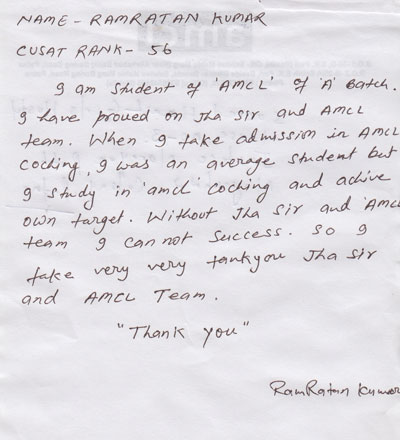 NAME - RAMRATAN KUMAR
CUSAT RANK - 56
I am student of 'AMCL' of 'A' Batch.
I have proued on Jha Sir and AMCL
team. When I take admission in AMCL
coching, I was an average student but
I study in 'amcl' coching and achive
own target. Without Jha Sir and 'AMCL
team I can not success. So I
take very very tankyou Jha Sir
and AMCL Team.
"Thank you"
RamRatan Kumar